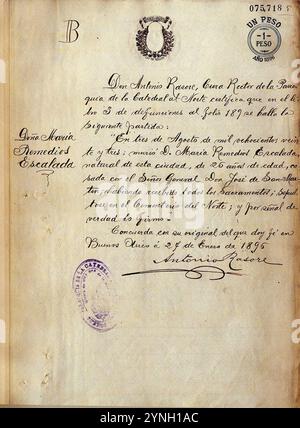 075,718
B
UN PESO
-1-
PESO
AÑO 1896
Don Antonio Rasore, Cura Rector de la Parro-
quia de la Catedral al Norte certifica que en el li-
bro 3 de defunciones al folio 187 se halla la
siguiente partida.
Doña María
Remedios
Escalada
"En tres de Agosto de mil ochocientos vein-
te y tres: murió D. María Remedios Escalada,
natural de esta ciudad, de 26 años de edad, ca-
sada con el Señor General Don José de San Mar-
tin; habiendo recibido todos los Sacramentos; sepul-
tose en el Cementerio del Norte; y por señal de
verdad lo firmo.
Concuerda con su original del que doy fé en
Buenos Aires á 27 de Enero de 1896
Antonio Rasore
alamy
Image ID: 2YNH1AC
www.alamy.com